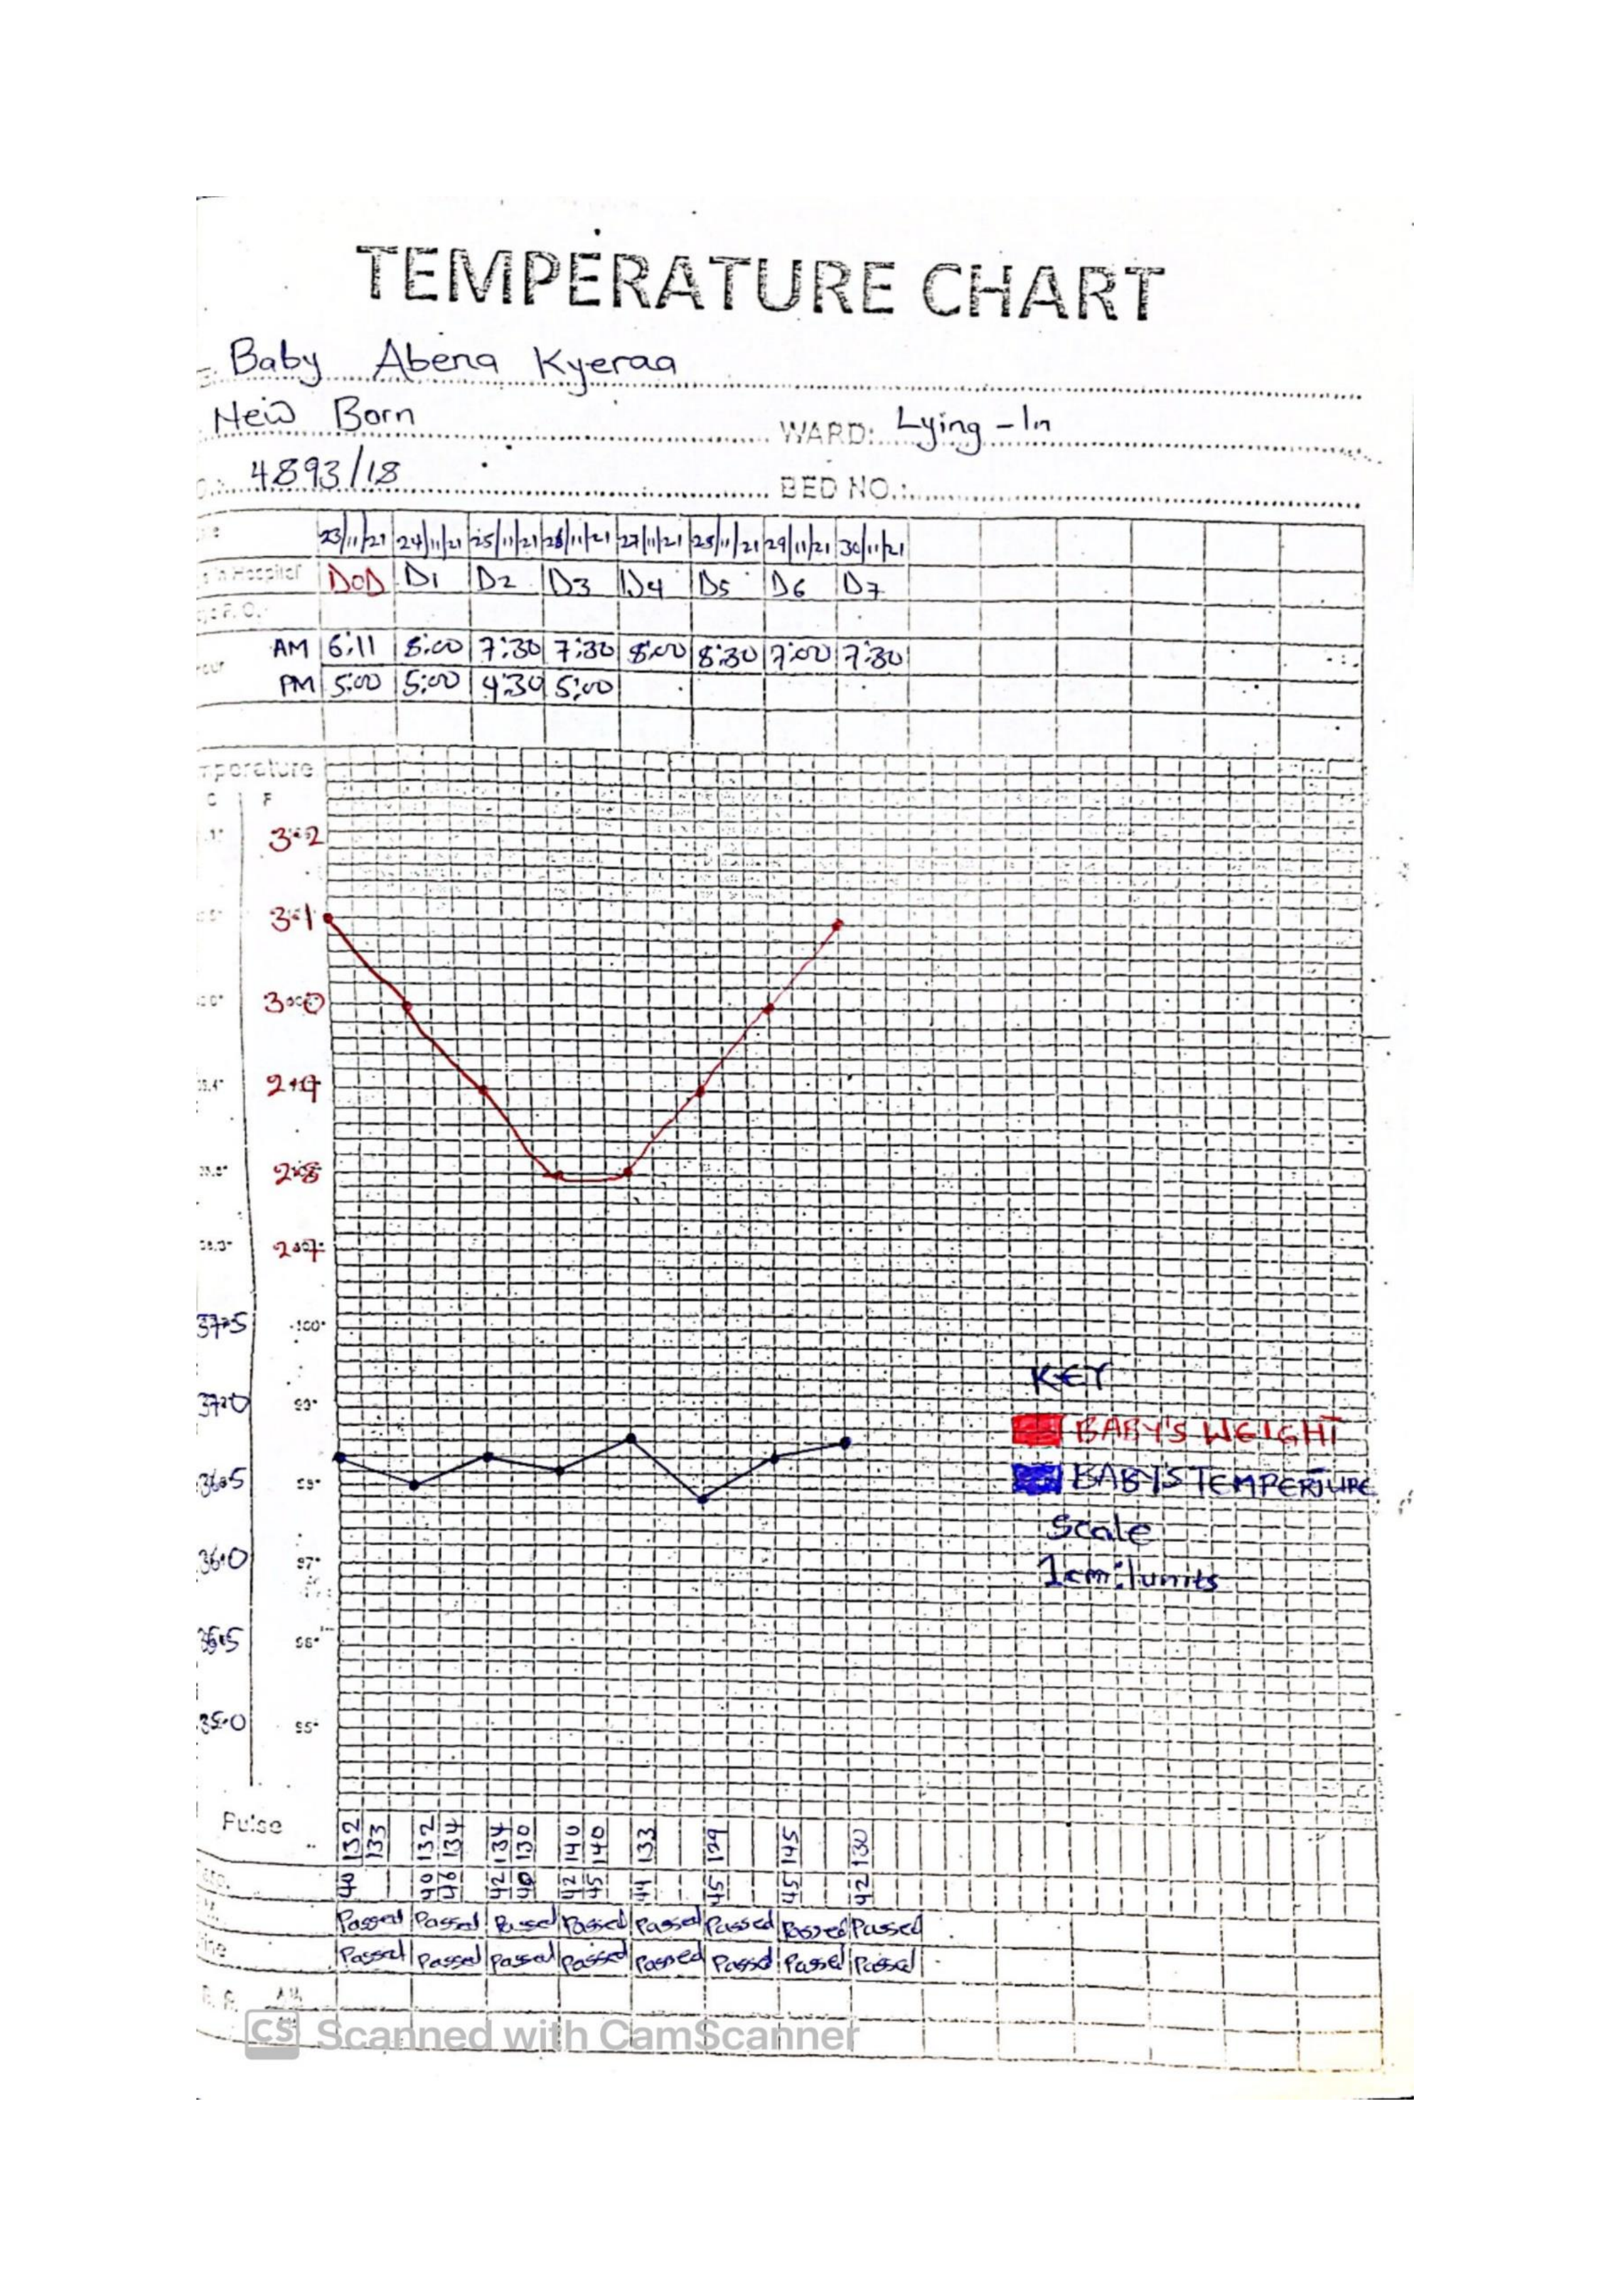 TEMPERATURE CHART
Baby Abena Kyeraa
New Born WARD: Lying-In
4893/18 BED NO.:
23/11/21 24/11/21 25/11/21 26/11/21 27/11/21 28/11/21 29/11/21 30/11/21
in Hospital DOD D1 D2 D3 D4 D5 D6 D7
AM 6:11 8:00 7:30 7:30 8:00 8:30 7:00 7:30
PM 5:00 5:00 4:30 5:00
C F
3.2
3.1
3.0
2.9
2.8
2.7
37.5 100°
KEY
37.0
BABY'S WEIGHT
36.5
BABY'S TEMPERTURE
Scale
36.0 97°
1cm:1units
96°
35.0 95°
Pulse 132 133 132 134 134 130 140 140 133 129 145 130
40 40 46 42 40 42 45 44 45 45 42
Passed Passed Passed Passed Passed Passed Passed Passed
Passed Passed Passed Passed Passed Passed Passed Passed
CS Scanned with CamScanner